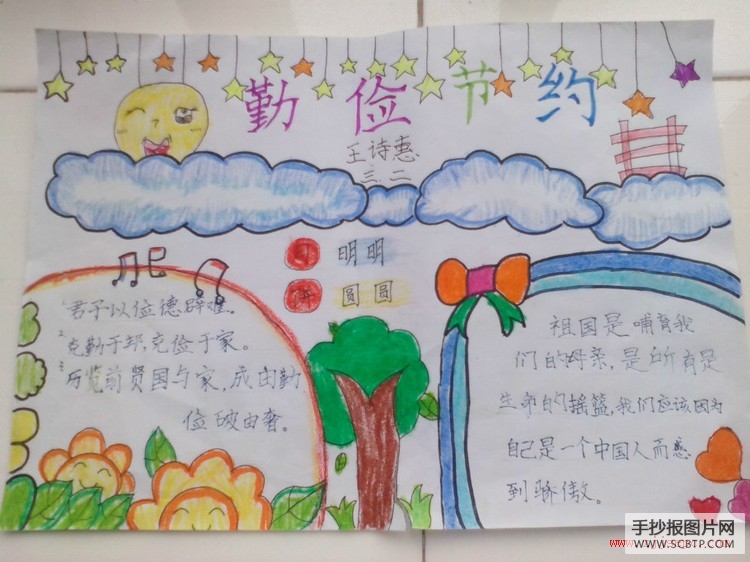 勤俭节约
王诗惠
三.二
日 明明
月 圆圆
1.君子以位德辟难.
2.克勤于邦,克俭于家。
3.历览前贤国与家,成由勤
位破由奢。
祖国是哺育我
们的母亲,是所有是
生命的摇篮,我们应该因为
自己是一个中国人而感
到骄傲。
手抄报图片网
WWW.SCBTP.COM